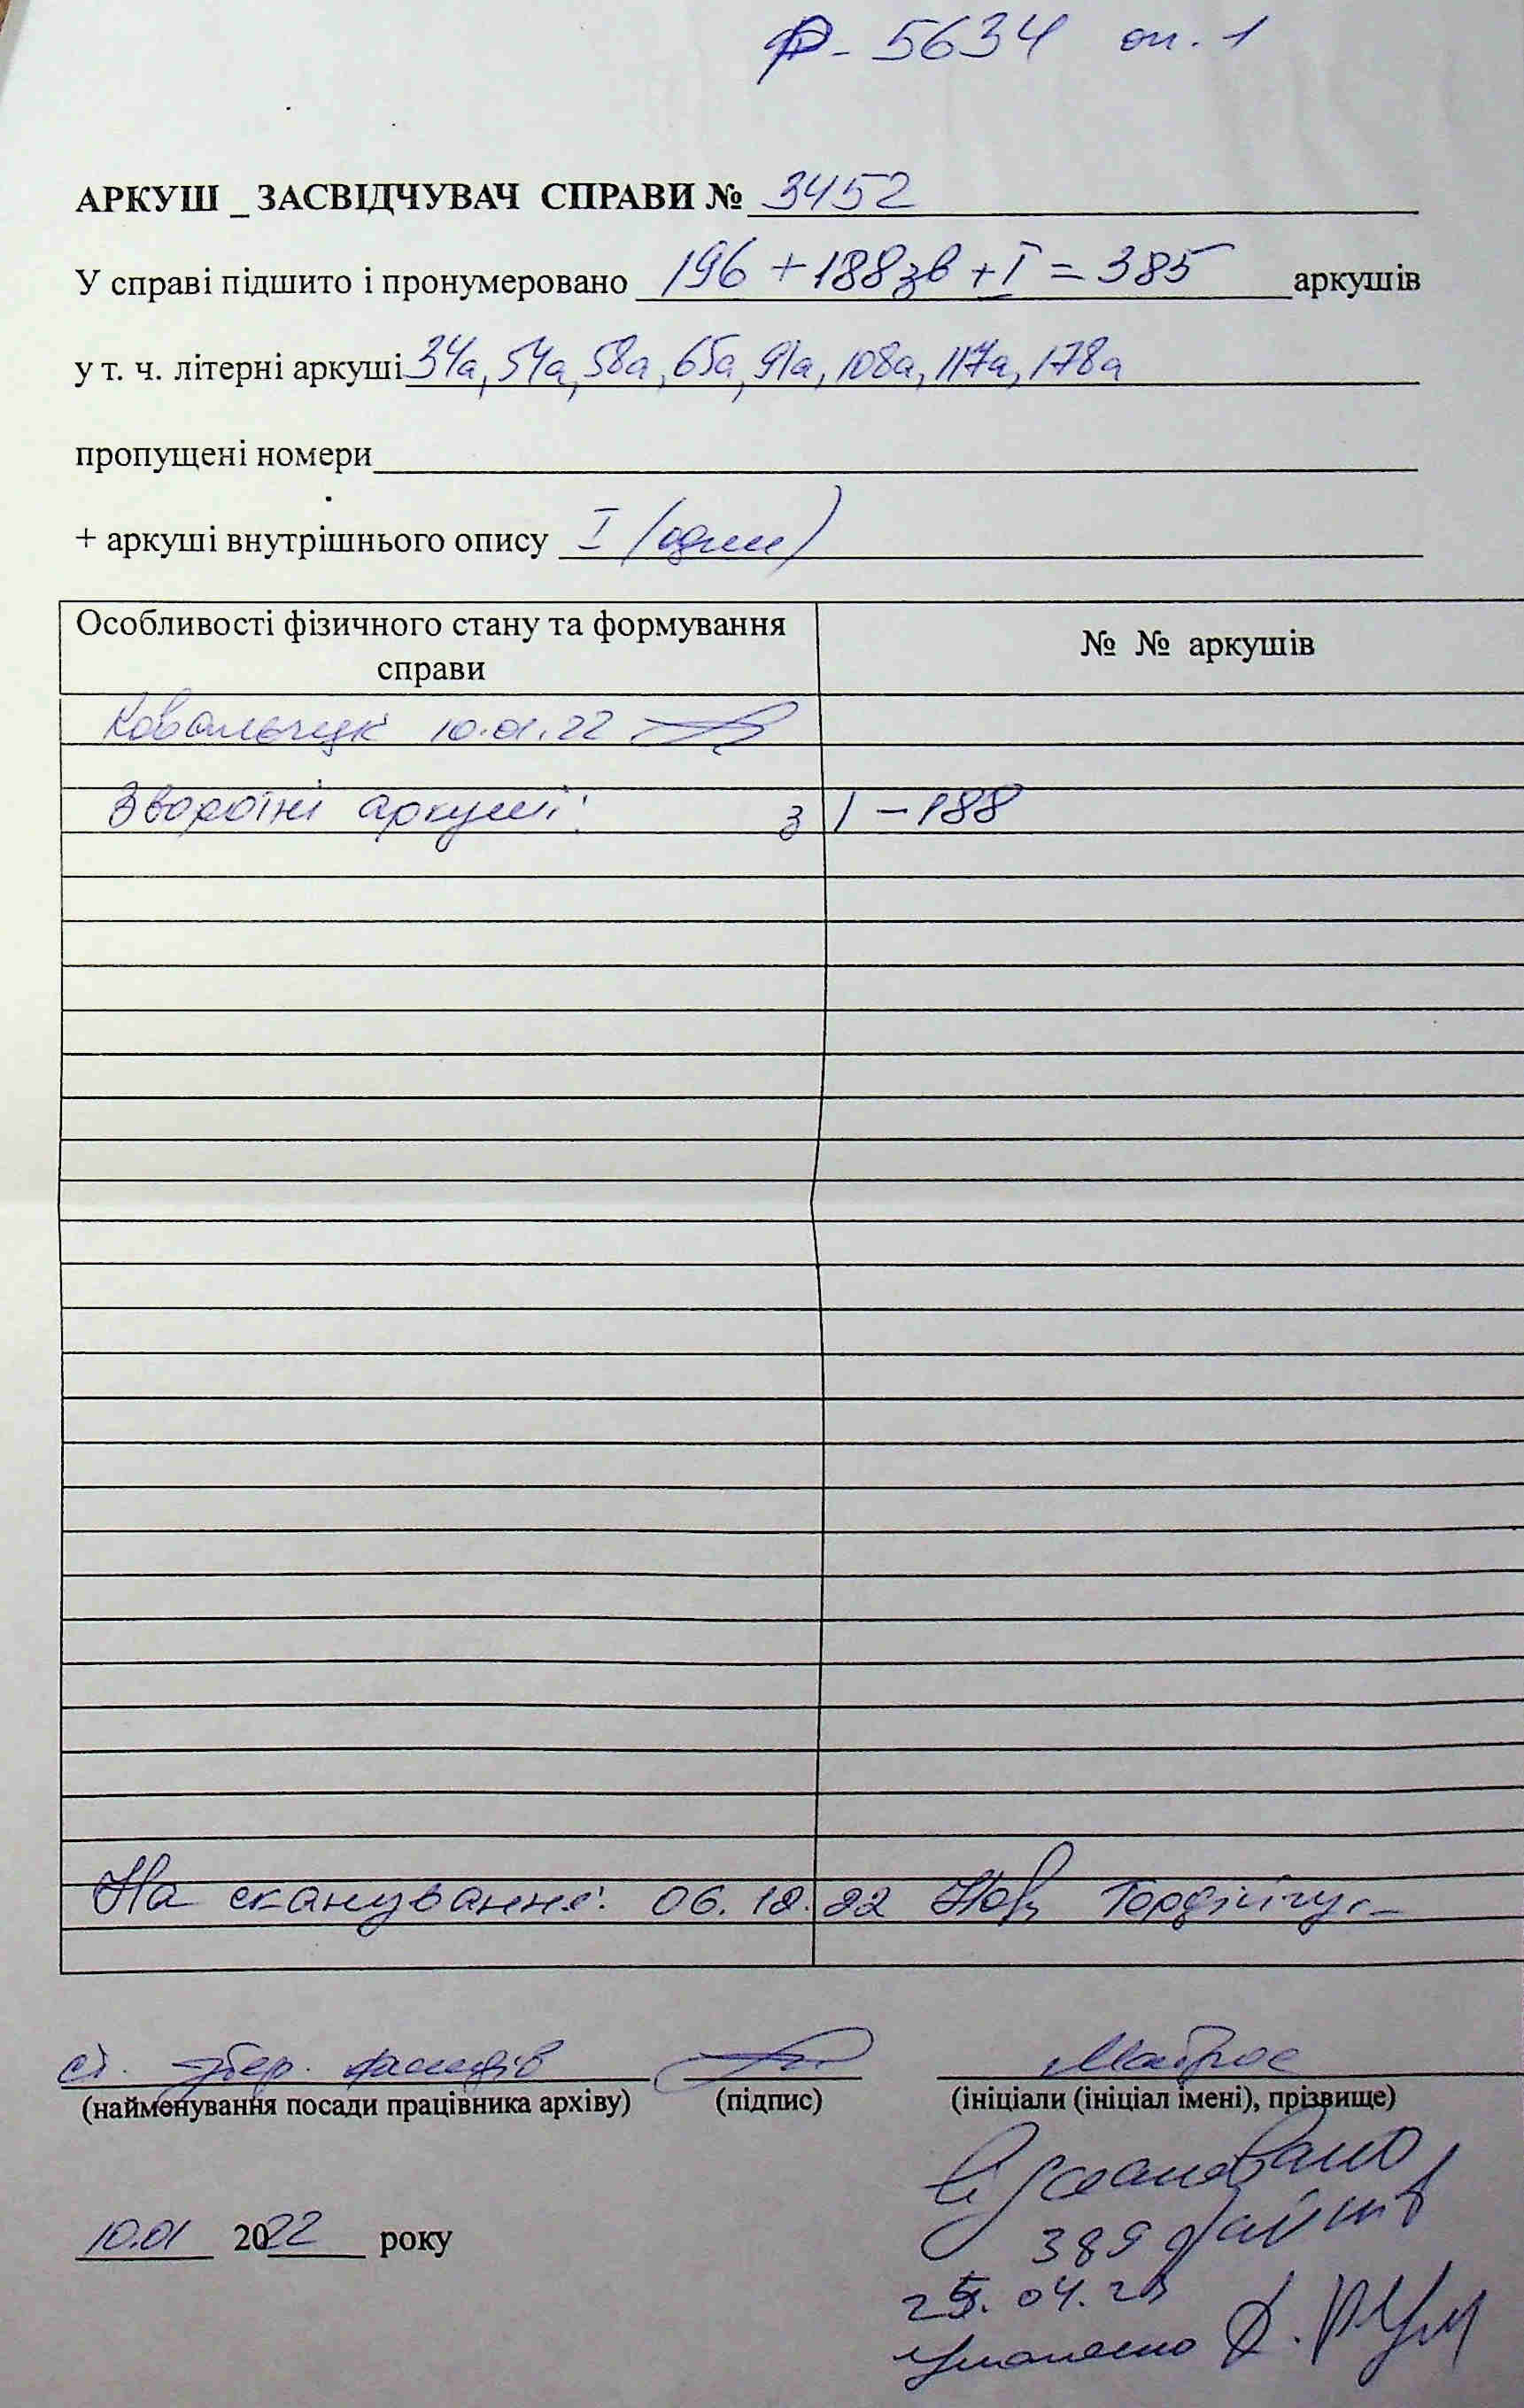 Р - 5634 оп. 1
АРКУШ _ ЗАСВІДЧУВАЧ СПРАВИ № 3452
У справі підшито і пронумеровано 196 + 188зв + I = 385 аркушів
у т. ч. літерні аркуші 34а, 54а, 58а, 65а, 91а, 108а, 117а, 178а
пропущені номери
+ аркуші внутрішнього опису I (один)
Особливості фізичного стану та формування справи
№ № аркушів
Ковальчук 10.01.22
Зворотні аркуші: з 1 - 188
На сканування: 06.12.22
ст. збер. фондів Матрос
(найменування посади працівника архіву) (підпис) (ініціали (ініціал імені), прізвище)
10.01 2022 року
Відскановано
389 файлів
25.04.23